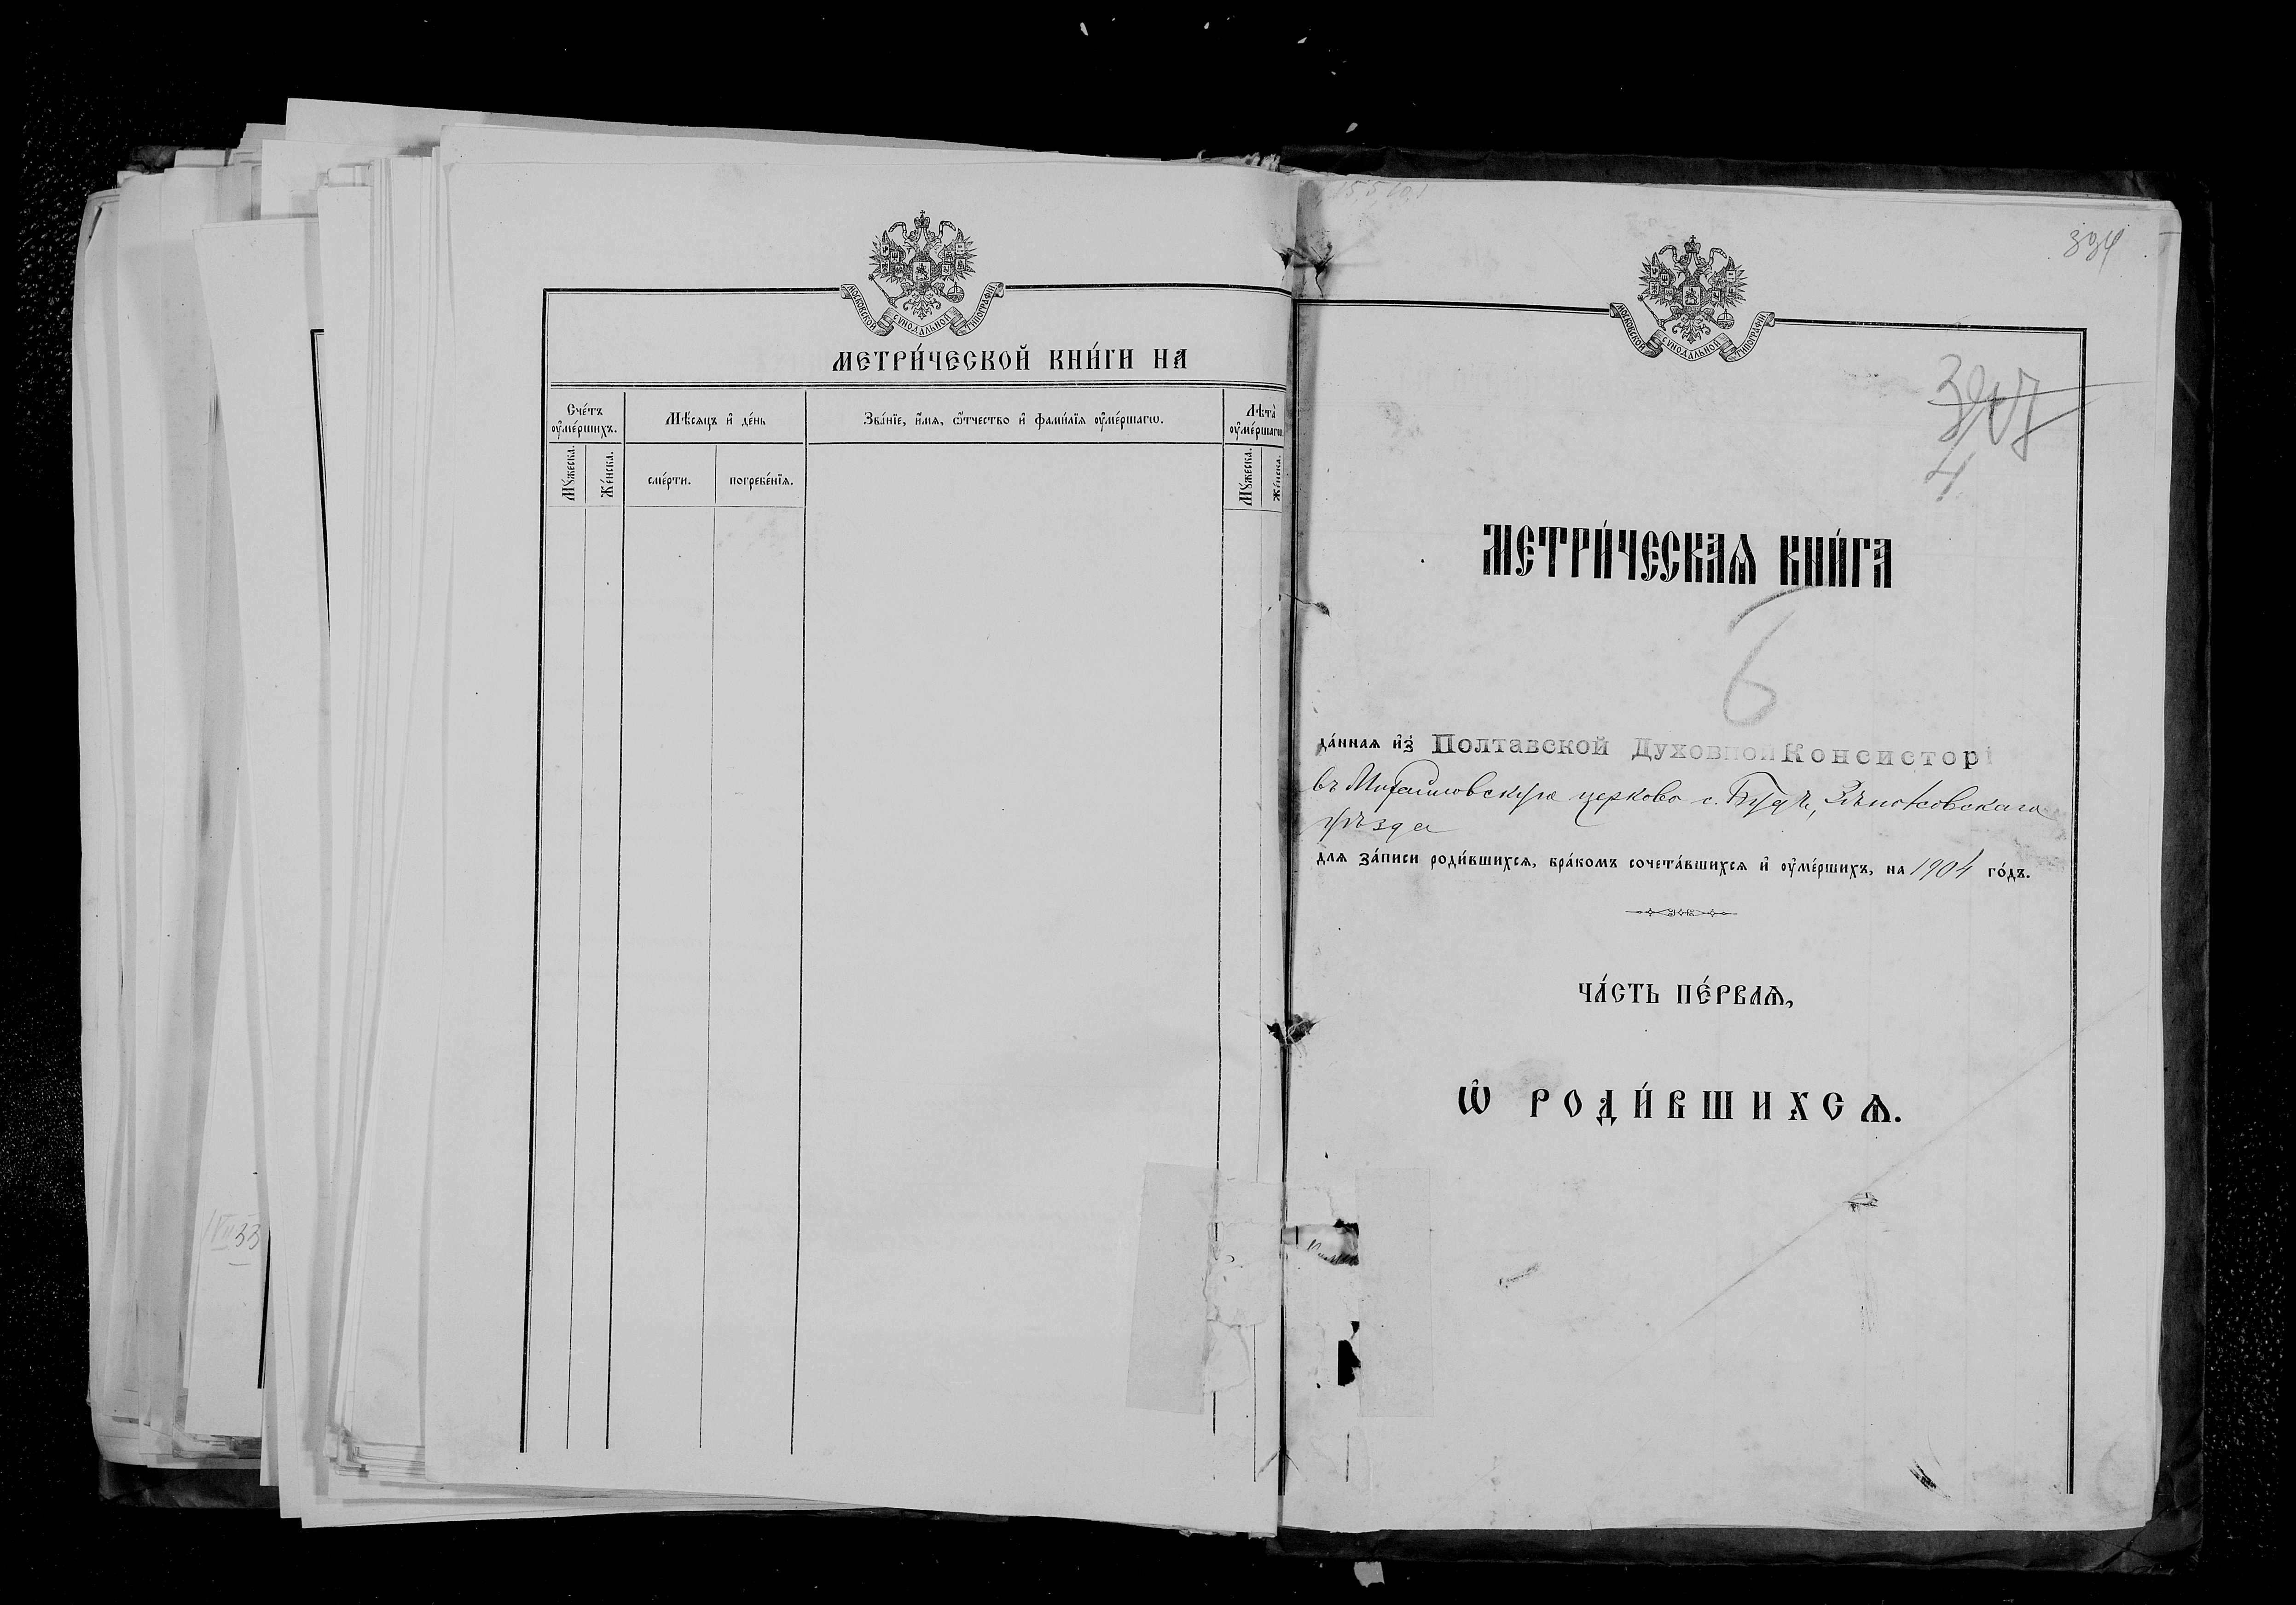 МОСКОВСКОЙ СУНОДАЛЬНОЙ ТИПОГРАФІИ
МЕТРИ́ЧЕСКОЙ КНИ́ГИ НА
Сче́тъ ᲂу҆ме́ршихъ.
Мѣ́сяцъ и҆ де́нь
Зва́нїе, и҆́мѧ, ѻ҆́тчество и҆ фами́лїѧ ᲂу҆ме́ршагѡ.
Лѣ́та ᲂу҆ме́ршагѡ
Мꙋ́жеска.
Же́нска.
сме́рти.
погребе́нїѧ.
Мꙋ́жеска.
Же́нска.
VII 33
334
МОСКОВСКОЙ СУНОДАЛЬНОЙ ТИПОГРАФІИ
4
МЕТРИ́ЧЕСКАѦ КНИ́ГА
6
да́ннаѧ и҆з̾ Полтавской Духовной Консисторі
въ Михайловскую церковь с. Будъ, Зѣньковскаго
уѣзда
для за́писи роди́вшихсѧ, бра́комъ сочета́вшихсѧ и҆ ᲂу҆ме́ршихъ, на 1904 го́дъ.
ЧА́СТЬ ПЕ́РВАѦ,
Ѡ҆ РОДИ́ВШИХСѦ.